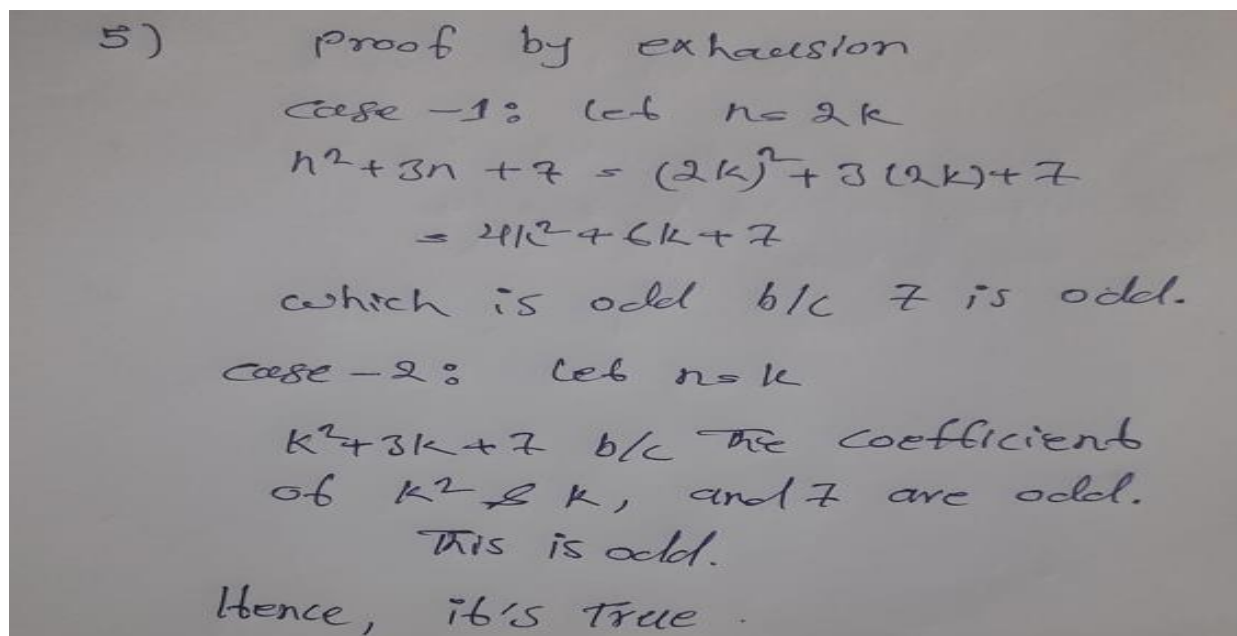 5) Proof by exhaustion
case -1: let n= 2k
n²+3n +7 = (2k)²+3(2k)+7
= 4k²+6k+7
which is odd b/c 7 is odd.
case -2: let n=k
k²+3k+7 b/c The coefficient
of k² & k, and 7 are odd.
This is odd.
Hence, it's True.